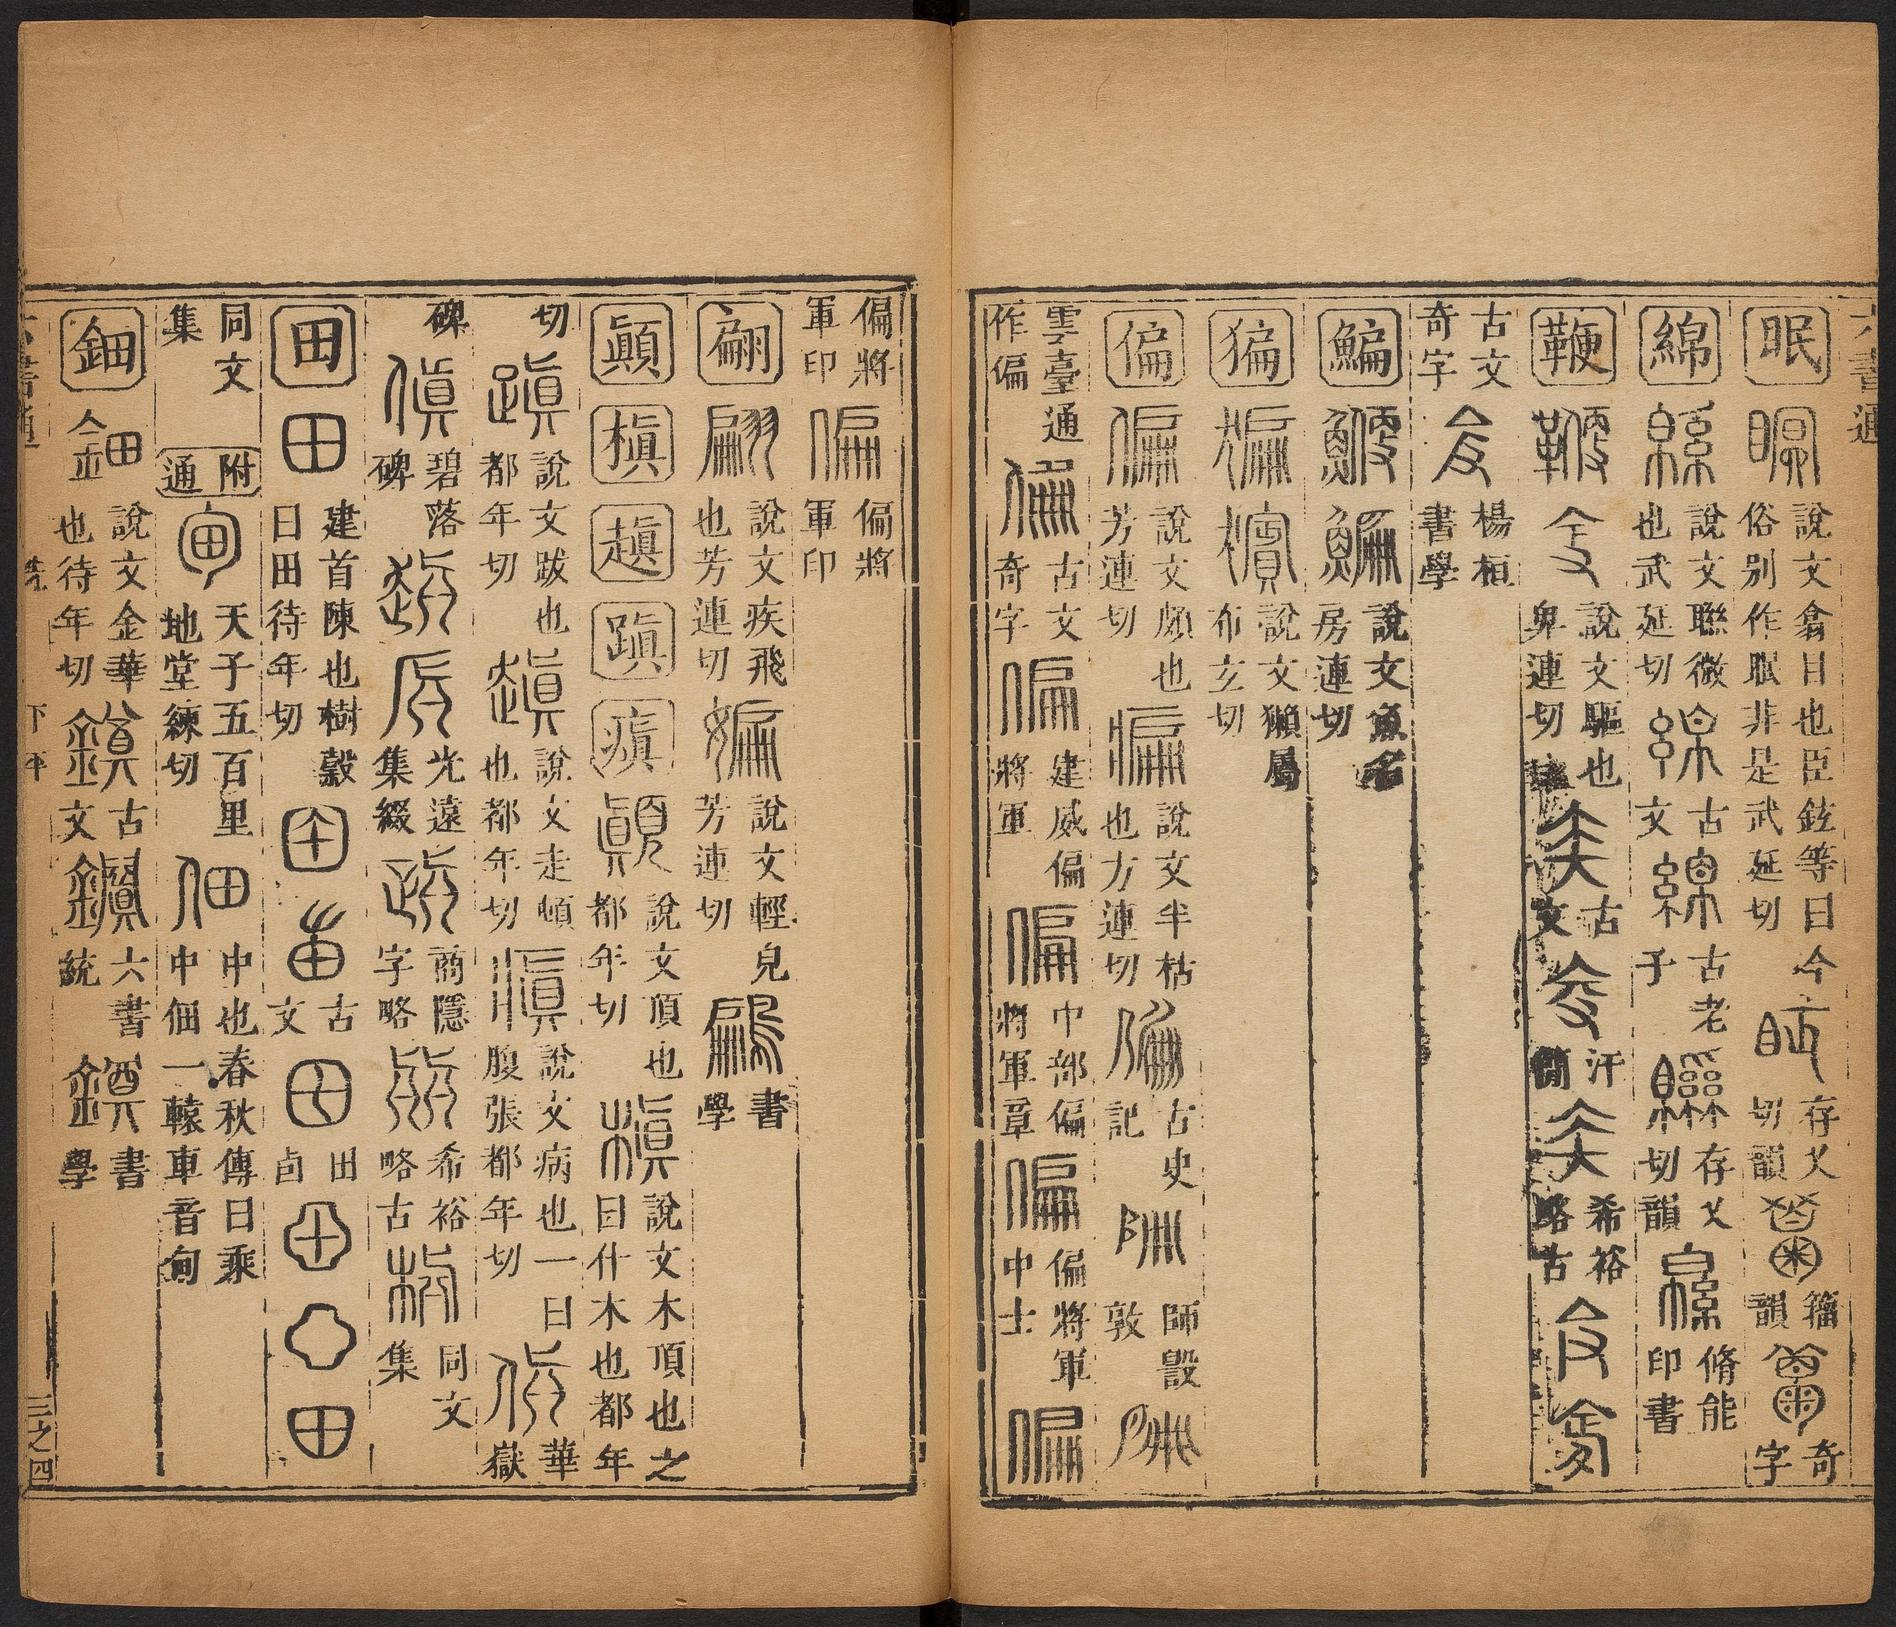 六書通
眠 說文翕目也臣鉉等曰今俗別作眠非是武延切 存乂切韻 籀韻 奇字
綿 說文聯微也武延切 古文 古老子 存乂切韻 脩能印書
鞭 說文驅也卑連切 古文 汗簡 希裕略古
古文奇字 楊桓書學
鯿 說文魚名房連切
猵 說文獺屬布玄切
偏 說文頗也芳連切 說文半枯也方連切 古史記 師㝬敦
雲臺通作偏 古文奇字 建威偏將軍 中部偏將軍章 偏將軍中士
偏將軍印 偏將軍印
翩 說文疾飛也芳連切 說文輕皃芳連切 書學
顚 槇 趚 蹎 瘨 說文頂也都年切 說文木頂也之曰什木也都年
切 說文跋也都年切 說文走頓也都年切 說文病也一曰腹張都年切 華嶽
碑 碧落碑 光遠集綴 商隱字略 希裕略古 同文集
田 建首陳也樹穀曰田待年切 古文 田卣
同文集 附通 天子五百里地堂練切 中也春秋傳曰乘中佃一轅車音甸
鈿 說文金華也待年切 古文 六書統 書學
六書通 下平 三之四